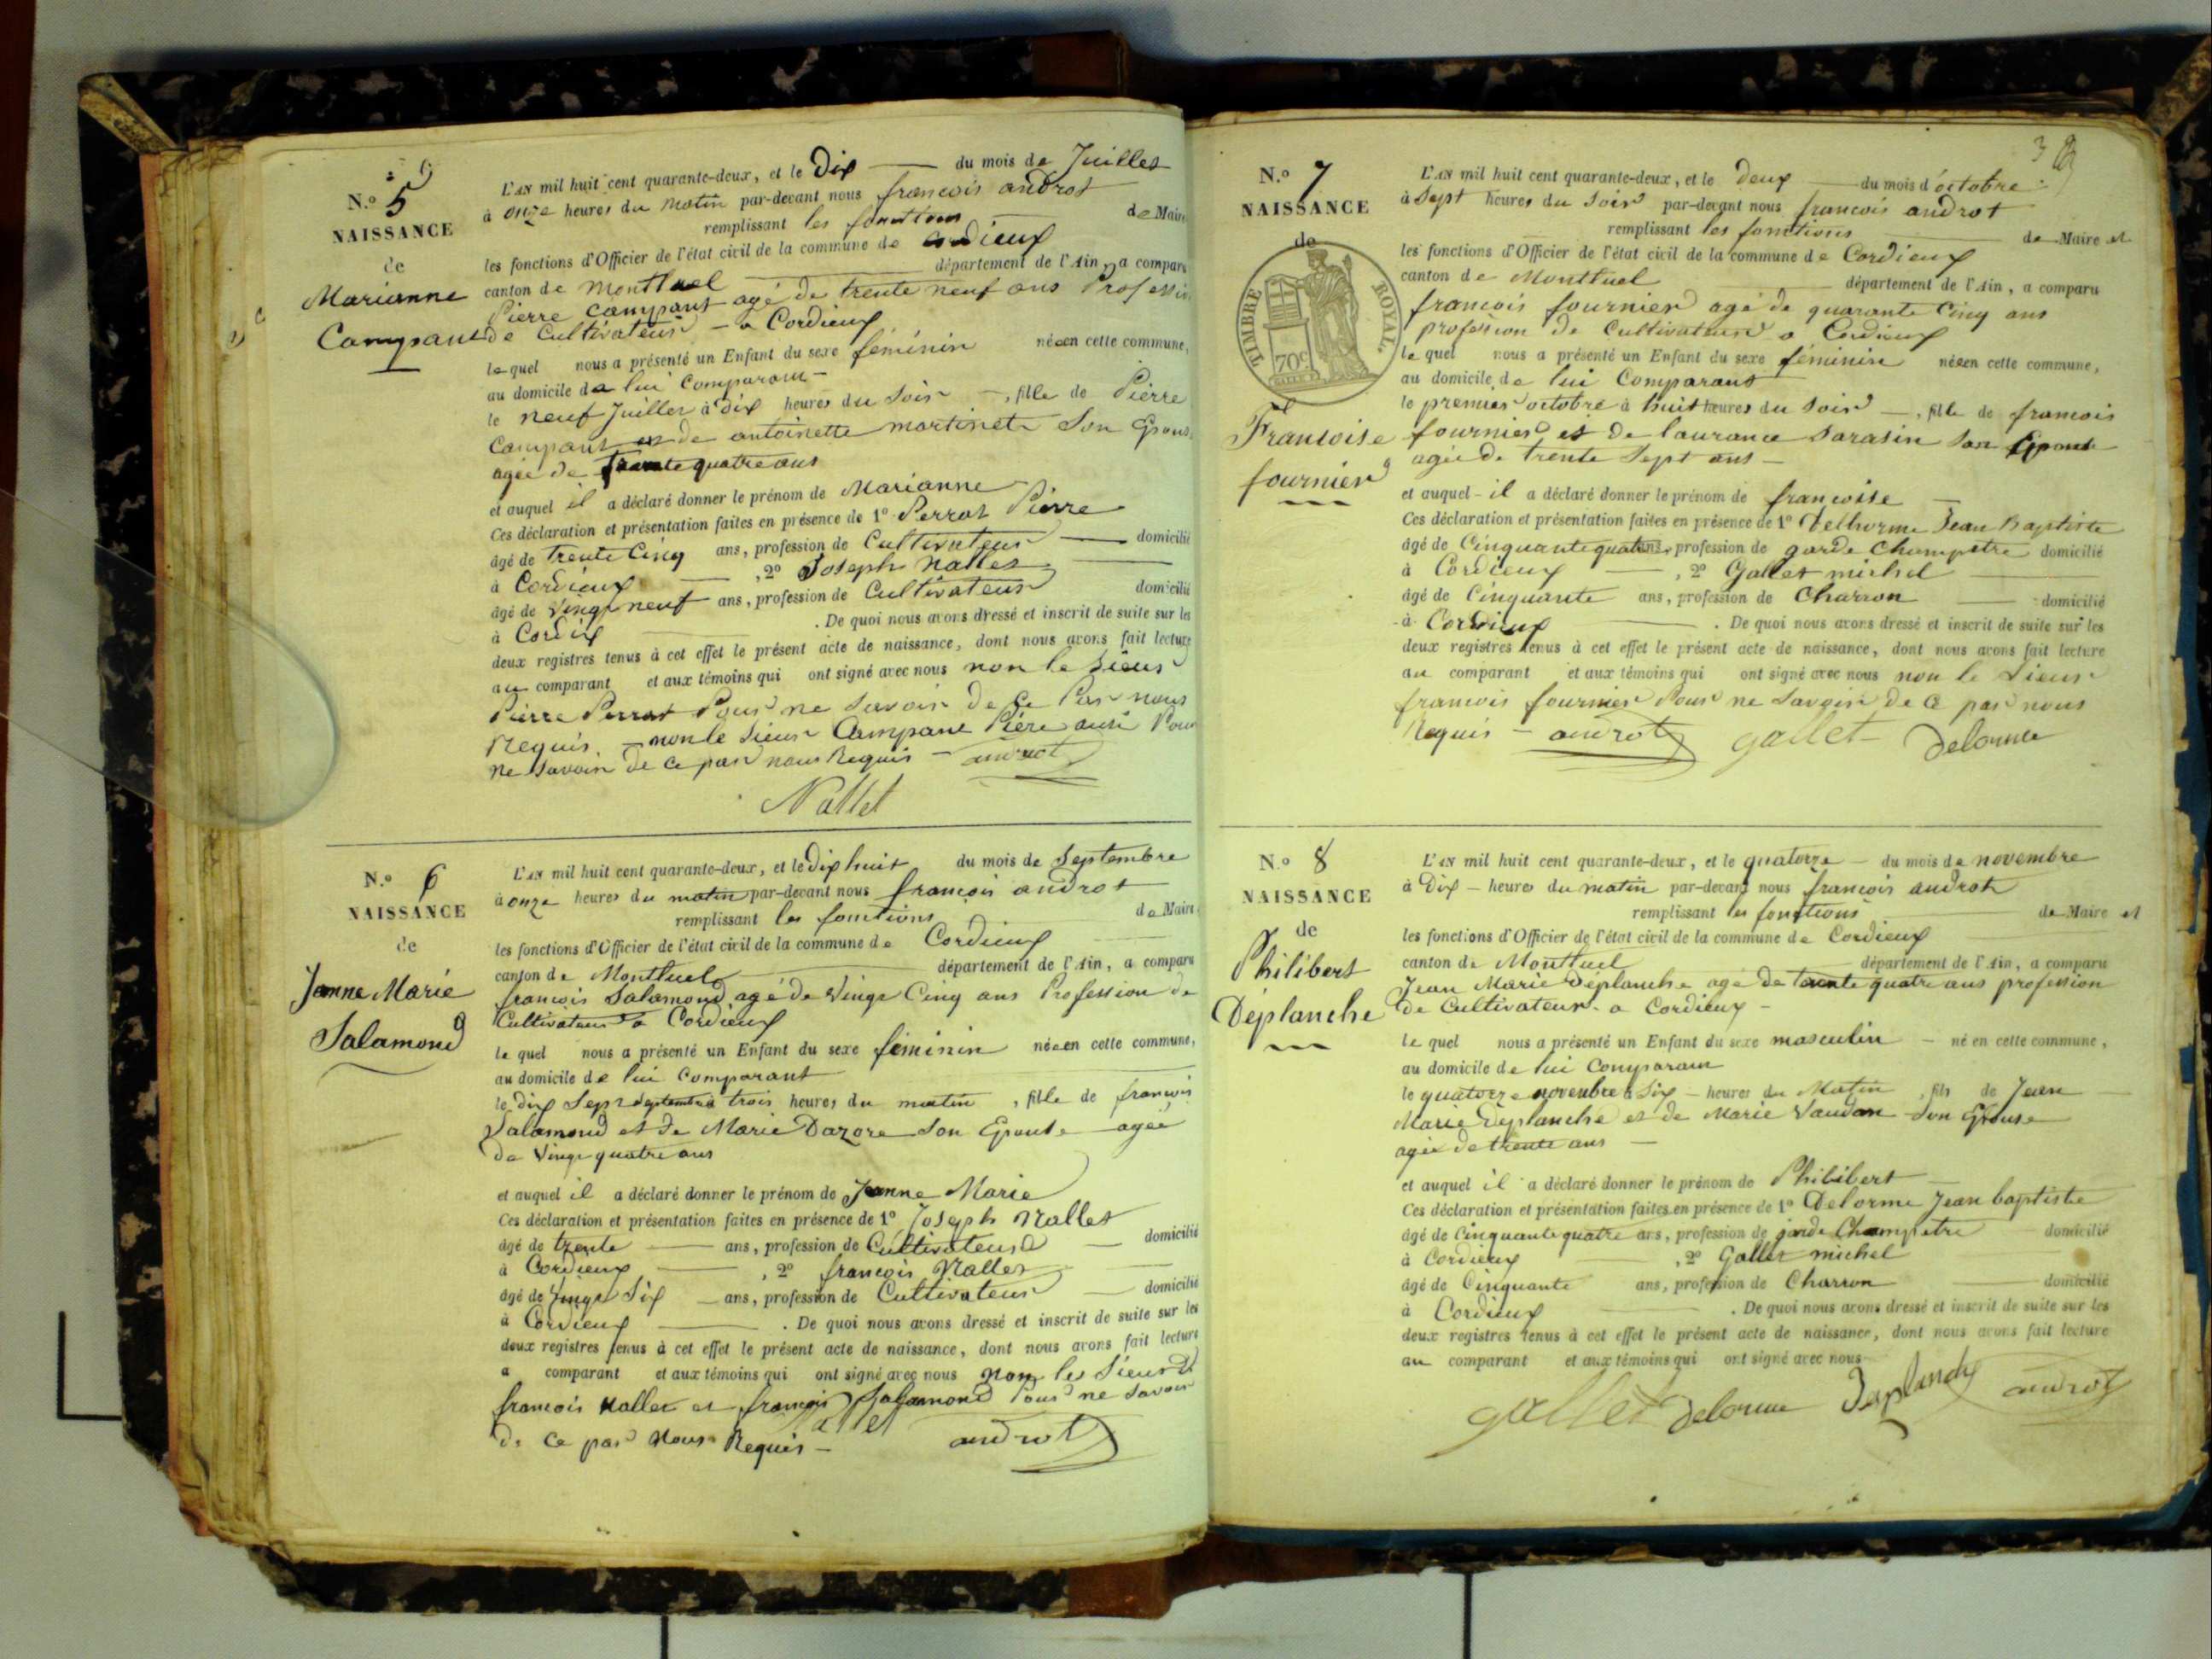 N.º 5
NAISSANCE
de
Marianne
Campant
L'AN mil huit cent quarante-deux, et le Dix du mois de Juillet
à onze heures du matin par-devant nous francois androt
remplissant les fonctions de Maire
les fonctions d'Officier de l'état civil de la commune de Cordieux
canton de montluel département de l'Ain, a comparu
Pierre Campant agé de trente neuf ans Profession
de Cultivateur a Cordieux
le quel nous a présenté un Enfant du sexe féminin née en cette commune,
au domicile de lui Comparant
le neuf Juillet à dix heures du soir, fille de Pierre
Campant et de antoinette martinet Son Epouse
agée de trente quatre ans
et auquel il a déclaré donner le prénom de Marianne
Ces déclaration et présentation faites en présence de 1º Perrot Pierre
âgé de trente Cinq ans, profession de Cultivateur domicilié
à Cordieux, 2º Joseph Nallet
âgé de Vingt neuf ans, profession de Cultivateur domicilié
à Cordix. De quoi nous avons dressé et inscrit de suite sur les
deux registres tenus à cet effet le présent acte de naissance, dont nous avons fait lecture
au comparant et aux témoins qui ont signé avec nous non le Sieur
Pierre Perrot Pour ne Savoir De Ce Par nous
Requis. non le Sieur Campant Père aussi Pour
ne Savoir de Ce par nous Requis androt
Nallet
N.º 6
NAISSANCE
de
Jeanne Marie
Salamond
L'AN mil huit cent quarante-deux, et le Dix huit du mois de Septembre
à onze heures du matin par-devant nous francois androt
remplissant les fonctions de Maire
les fonctions d'Officier de l'état civil de la commune de Cordieux
canton de Montluel département de l'Ain, a comparu
francois Salamond agé de Vingt Cinq ans Profession de
Cultivateur a Cordieux
le quel nous a présenté un Enfant du sexe féminin née en cette commune,
au domicile de lui Comparant
le dix Sept Septembre trois heures du matin, fille de francois
Salamond et de Marie Dazore Son Epouse agée
de Vingt quatre ans
et auquel il a déclaré donner le prénom de Jeanne Marie
Ces déclaration et présentation faites en présence de 1º Joseph Nallet
âgé de trente ans, profession de Cultivateur domicilié
à Cordieux, 2º francois Nallet
âgé de Vingt Six ans, profession de Cultivateur domicilié
à Cordieux. De quoi nous avons dressé et inscrit de suite sur les
deux registres tenus à cet effet le présent acte de naissance, dont nous avons fait lecture
a comparant et aux témoins qui ont signé avec nous non les Sieurs
francois Nallet et francois Salamond Pour ne Savoir
de Ce par Nous Requis Nallet androt
3
N.º 7
NAISSANCE
de
TIMBRE ROYAL.
70c
Francoise
fournier
L'AN mil huit cent quarante-deux, et le deux du mois d'octobre
à Sept heures du Soir par-devant nous francois androt
remplissant les fonctions de Maire et
les fonctions d'Officier de l'état civil de la commune de Cordieux
canton de Montluel département de l'Ain, a comparu
francois fournier agé de quarante Cinq ans
profession de Cultivateur a Cordieux
le quel nous a présenté un Enfant du sexe féminin née en cette commune,
au domicile de lui Comparant
le premier octobre à huit heures du Soir, fille de francois
fournier et de laurance Sarasin Son Epouse
agée de trente Sept ans
et auquel il a déclaré donner le prénom de françoise
Ces déclaration et présentation faites en présence de 1º Delhorme Jean Baptiste
âgé de Cinquante quatre ans, profession de garde Champetre domicilié
à Cordieux, 2º Gallet michel
âgé de Cinquante ans, profession de Charron domicilié
à Cordieux. De quoi nous avons dressé et inscrit de suite sur les
deux registres tenus à cet effet le présent acte de naissance, dont nous avons fait lecture
au comparant et aux témoins qui ont signé avec nous non le Sieur
francois fournier Pour ne Savoir de Ce par nous
Requis androt gallet Delorme
N.º 8
NAISSANCE
de
Philibert
Déplanche
L'AN mil huit cent quarante-deux, et le quatorze du mois de novembre
à Dix heures du matin par-devant nous francois androt
remplissant les fonctions de Maire et
les fonctions d'Officier de l'état civil de la commune de Cordieux
canton de Montluel département de l'Ain, a comparu
Jean Marie Déplanche agé de trente quatre ans profession
de Cultivateur a Cordieux
le quel nous a présenté un Enfant du sexe masculin né en cette commune,
au domicile de lui Comparant
le quatorze novembre à Six heures du Matin, fils de Jean
Marie Déplanche et de Marie Vaudan Son Epouse
agée de trente ans
et auquel il a déclaré donner le prénom de Philibert
Ces déclaration et présentation faites en présence de 1º Delorme Jean baptiste
âgé de Cinquante quatre ans, profession de garde Champetre domicilié
à Cordieux, 2º Gallet michel
âgé de Cinquante ans, profession de Charron domicilié
à Cordieux. De quoi nous avons dressé et inscrit de suite sur les
deux registres tenus à cet effet le présent acte de naissance, dont nous avons fait lecture
au comparant et aux témoins qui ont signé avec nous
gallet Delorme Déplanche androt